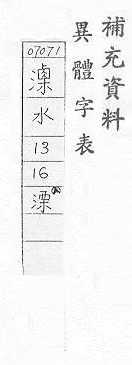 補充資料
異體字表
07071
澟
水
13
16
溧